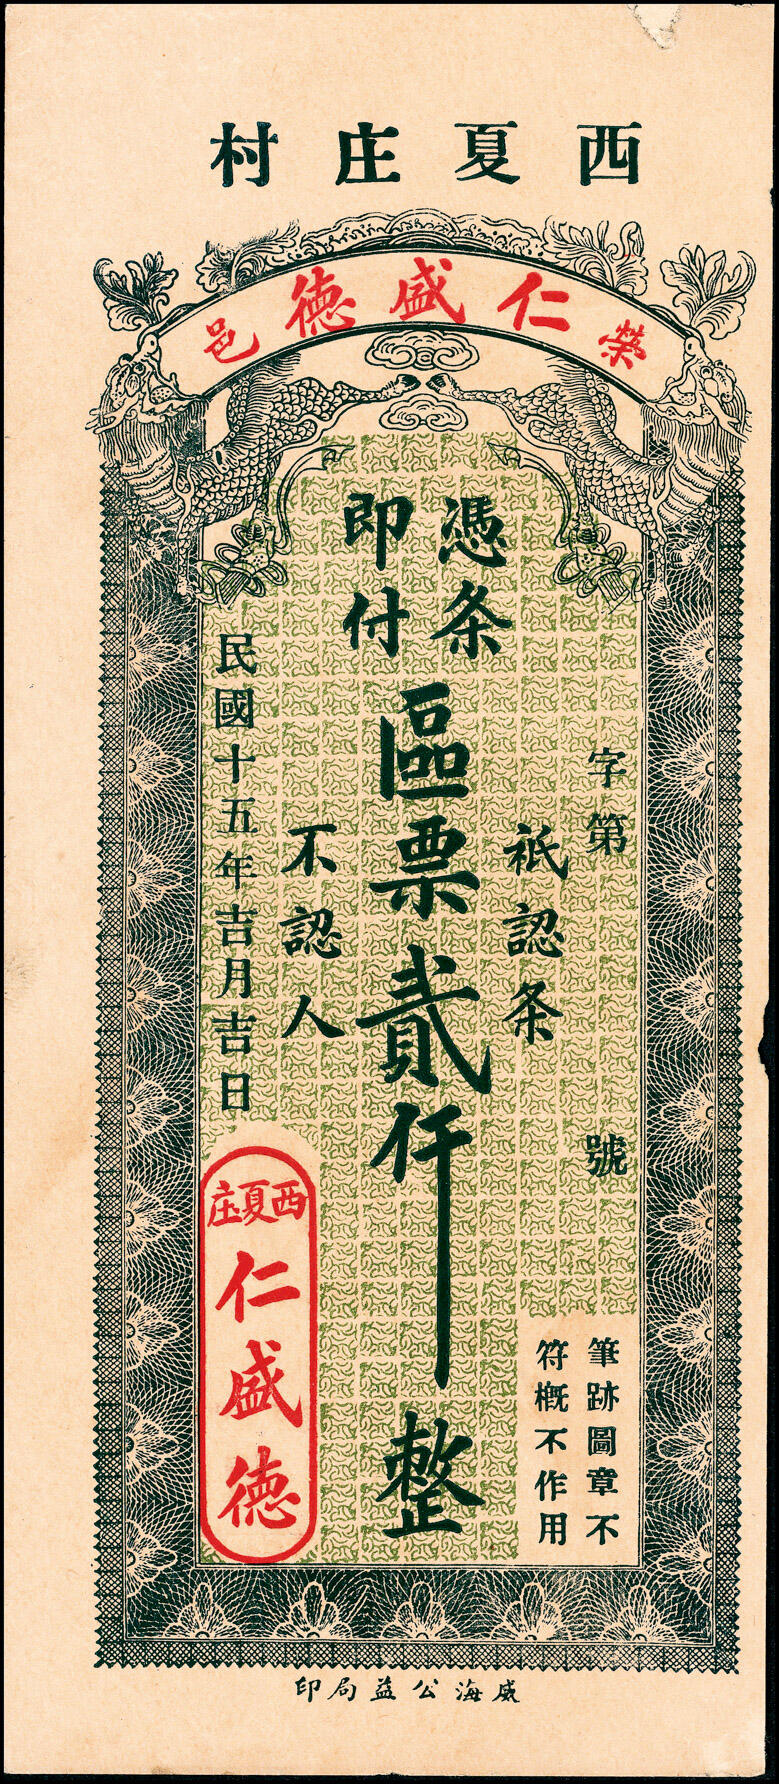 西夏庄村
榮仁盛德邑
憑条
即付
區票貳仟整
字第 號
衹認条
不認人
民國十五年吉月吉日
西夏庄
仁盛德
筆跡圖章不
符概不作用
威海公益局印